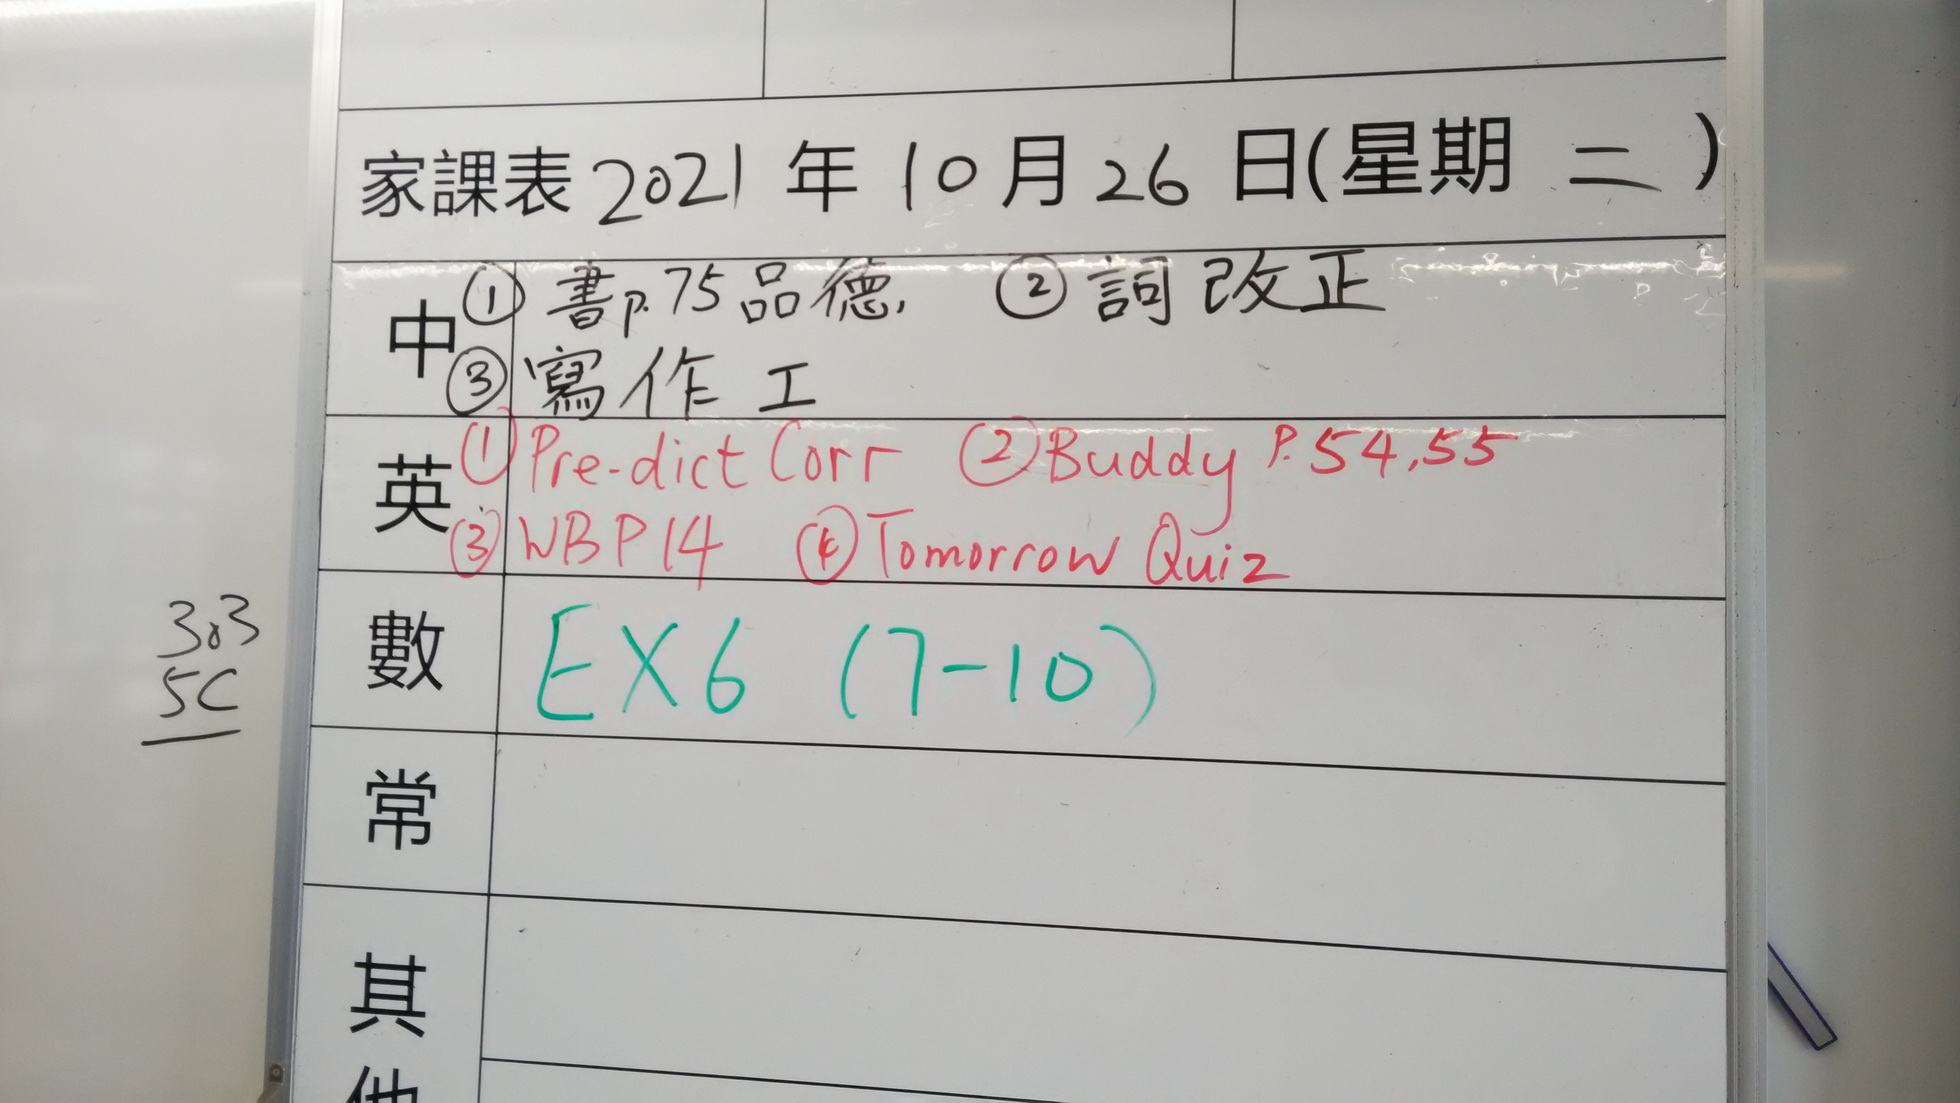 家課表 2021 年 10 月 26 日(星期 二 )
中 ① 書p.75品德, ② 詞改正
③ 寫作工
英 ① Pre-dict Corr ② Buddy P.54,55
③ WB P14 ④ Tomorrow Quiz
數 EX6 (7-10)
303
5C
常
其他